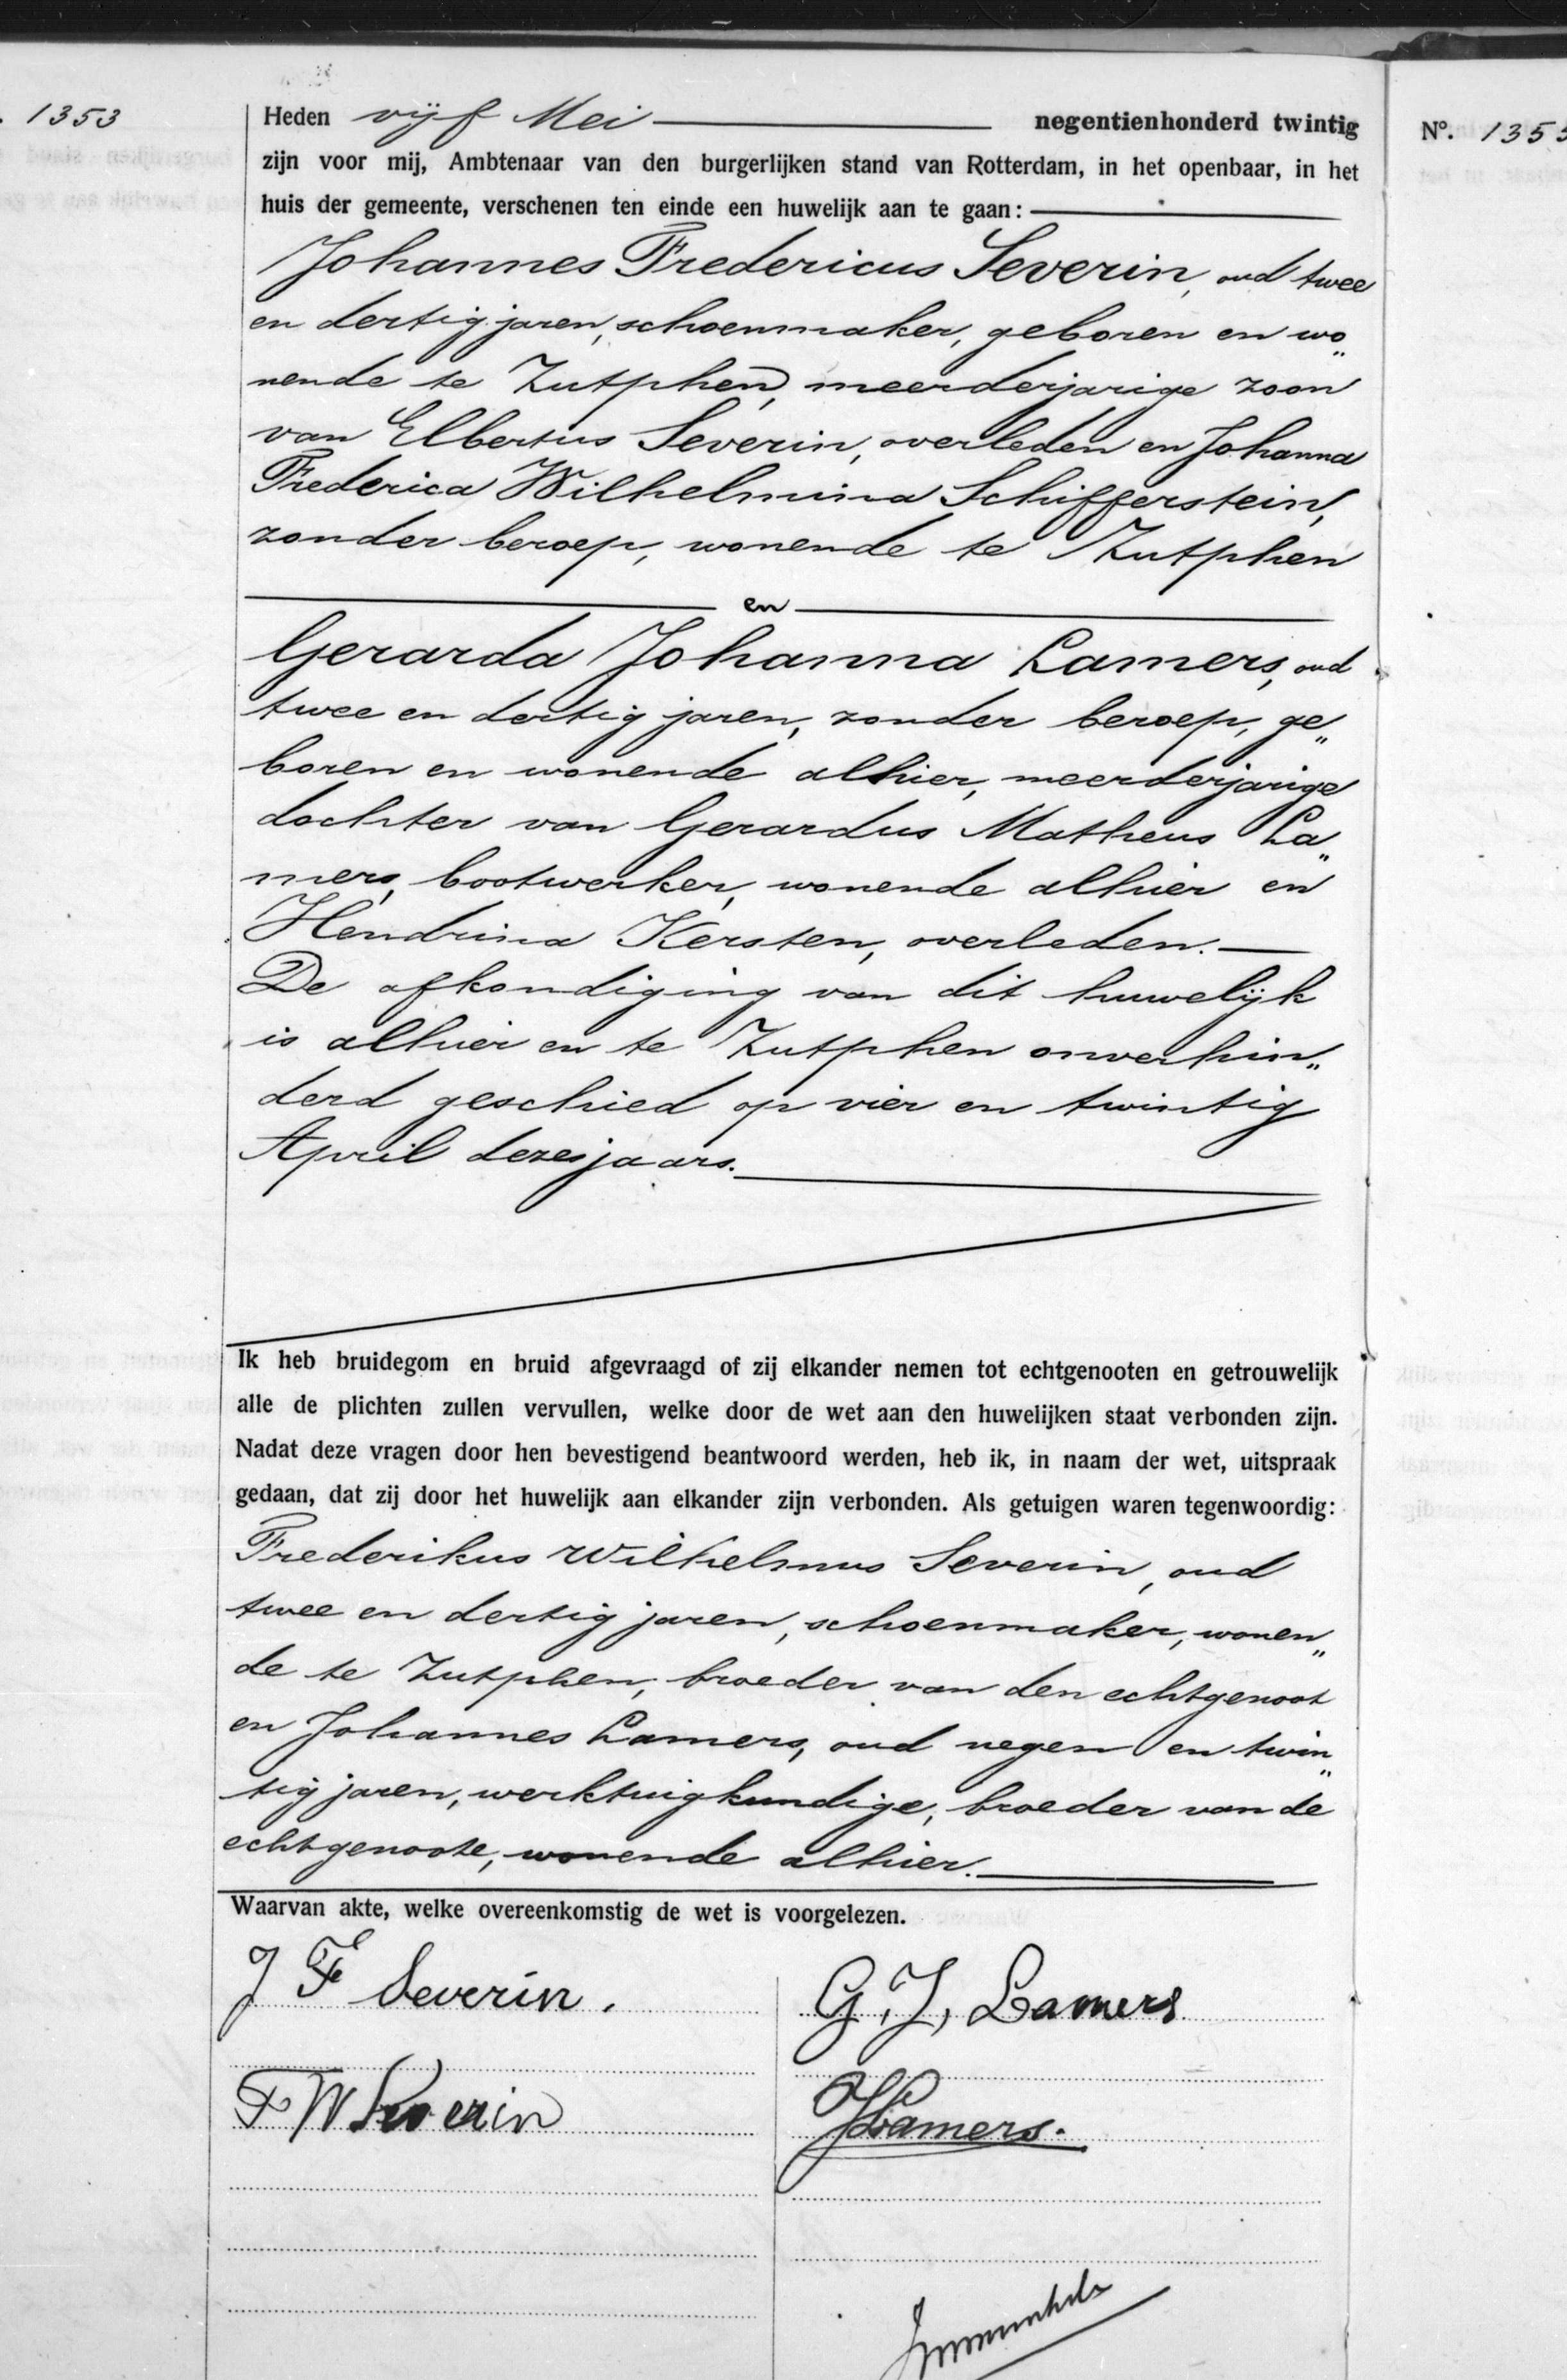 1353
Heden vijf Mei negentienhonderd twintig
zijn voor mij, Ambtenaar van den burgerlijken stand van Rotterdam, in het openbaar, in het
huis der gemeente, verschenen ten einde een huwelijk aan te gaan:
Johannes Fredericus Severin, oud twee
en dertig jaren, schoenmaker, geboren en wo„
nende te Zutphen, meerderjarige zoon
van Elbertus Severin, overleden en Johanna
Frederica Wilhelmina Schifferstein,
zonder beroep, wonende te Zutphen
en
Gerarda Johanna Lamers, oud
twee en dertig jaren, zonder beroep, ge„
boren en wonende alhier, meerderjarige
dochter van Gerardus Matheus La„
mers, bootwerker, wonende alhier en
Hendrina Kersten, overleden.
De afkondiging van dit huwelijk
is alhier en te Zutphen onverhin„
derd geschied op vier en twintig
April dezes jaars.
Ik heb bruidegom en bruid afgevraagd of zij elkander nemen tot echtgenooten en getrouwelijk
alle de plichten zullen vervullen, welke door de wet aan den huwelijken staat verbonden zijn.
Nadat deze vragen door hen bevestigend beantwoord werden, heb ik, in naam der wet, uitspraak
gedaan, dat zij door het huwelijk aan elkander zijn verbonden. Als getuigen waren tegenwoordig:
Frederikus Wilhelmus Severin, oud
twee en dertig jaren, schoenmaker, wonen„
de te Zutphen, broeder van den echtgenoot
en Johannes Lamers, oud negen en twin„
tig jaren, werktuigkundige, broeder van de
echtgenoote, wonende alhier.
Waarvan akte, welke overeenkomstig de wet is voorgelezen.
J F Severin.
G. J. Lamers
F W Severin
J Lamers.
Nº.